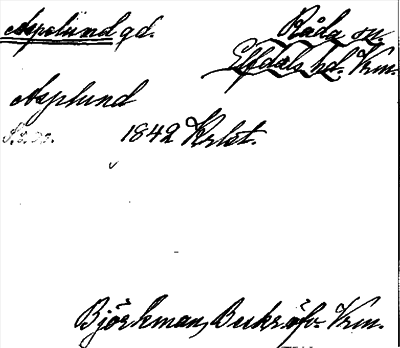 Asplund gd. Råda sn.
Elfdals hd. Vrm.
Asplund
1842 Krlst.
Björkman, Beskr. öfv. Vrm.